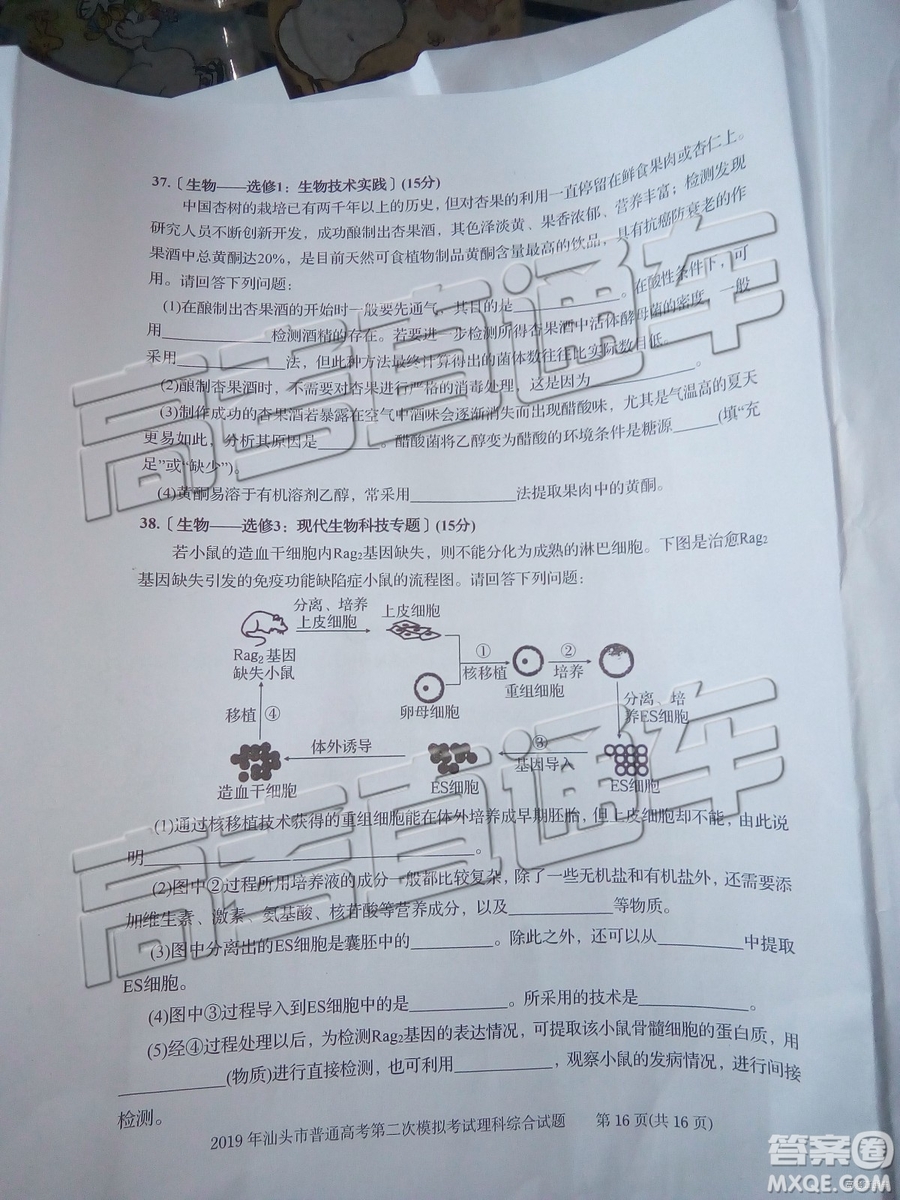 37.［生物——选修1：生物技术实践］(15分)
中国杏树的栽培已有两千年以上的历史，但对杏果的利用一直停留在鲜食果肉或杏仁上。
研究人员不断创新开发，成功酿制出杏果酒，其色泽淡黄、果香浓郁、营养丰富；检测发现
果酒中总黄酮达20%，是目前天然可食植物制品黄酮含量最高的饮品，具有抗癌防衰老的作
用。请回答下列问题：
(1)在酿制出杏果酒的开始时一般要先通气，其目的是____________。在酸性条件下，可
用____________检测酒精的存在。若要进一步检测所得杏果酒中活体酵母菌的密度，一般
采用____________法，但此种方法最终计算得出的菌体数往往比实际数目低。
(2)酿制杏果酒时，不需要对杏果进行严格的消毒处理，这是因为____________。
(3)制作成功的杏果酒若暴露在空气中酒味会逐渐消失而出现醋酸味，尤其是气温高的夏天
更易如此，分析其原因是_______。醋酸菌将乙醇变为醋酸的环境条件是糖源_____(填“充
足”或“缺少”)。
(4)黄酮易溶于有机溶剂乙醇，常采用____________法提取果肉中的黄酮。
38.［生物——选修3：现代生物科技专题］(15分)
若小鼠的造血干细胞内Rag2基因缺失，则不能分化为成熟的淋巴细胞。下图是治愈Rag2
基因缺失引发的免疫功能缺陷症小鼠的流程图。请回答下列问题：
分离、培养
上皮细胞
上皮细胞
Rag2基因
缺失小鼠
卵母细胞
①
核移植
重组细胞
②
培养
分离、培
养ES细胞
ES细胞
③
基因导入
ES细胞
体外诱导
造血干细胞
移植
④
(1)通过核移植技术获得的重组细胞能在体外培养成早期胚胎，但上皮细胞却不能，由此说
明____________________________________。
(2)图中②过程所用培养液的成分一般都比较复杂，除了一些无机盐和有机盐外，还需要添
加维生素、激素、氨基酸、核苷酸等营养成分，以及____________等物质。
(3)图中分离出的ES细胞是囊胚中的__________。除此之外，还可以从__________中提取
ES细胞。
(4)图中③过程导入到ES细胞中的是___________。所采用的技术是_____________。
(5)经④过程处理以后，为检测Rag2基因的表达情况，可提取该小鼠骨髓细胞的蛋白质，用
____________(物质)进行直接检测，也可利用___________，观察小鼠的发病情况，进行间接
检测。
2019年汕头市普通高考第二次模拟考试理科综合试题 第16页(共16页)
高考直通车
高考直通车
答案圈
MXQE.COM